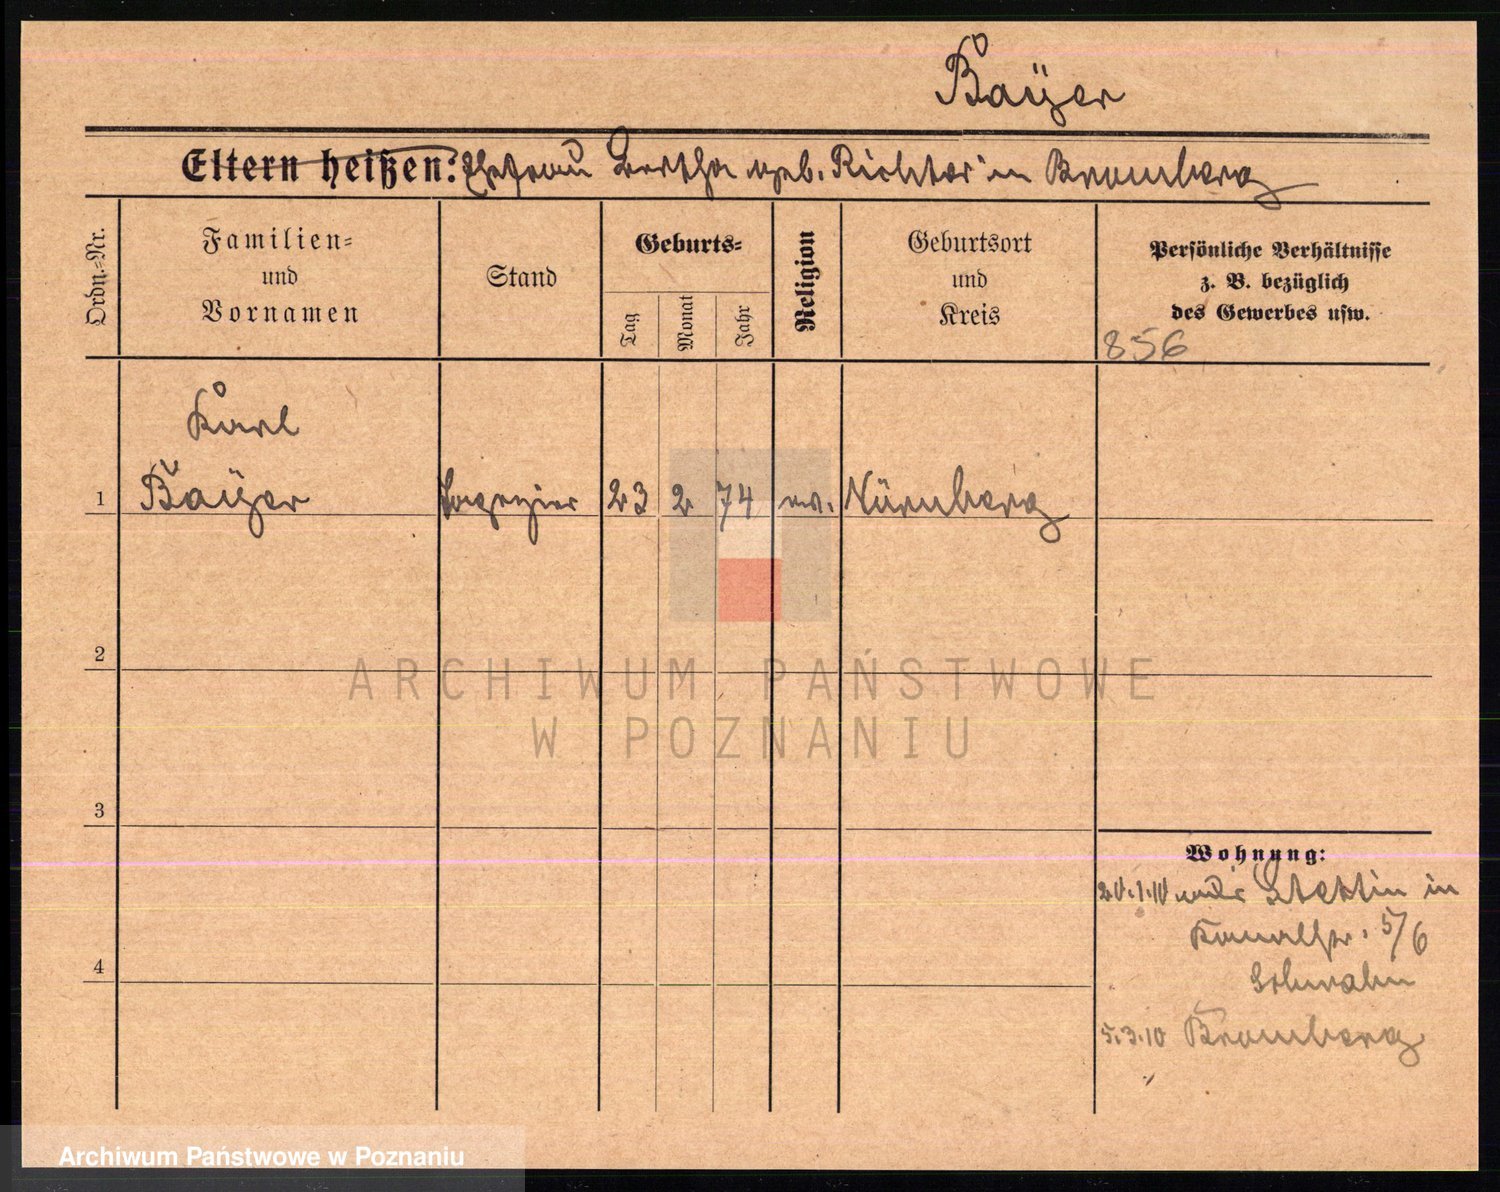 Baÿer
Eltern heißen: Ehefrau Bertha geb. Richter in Bromberg
Ordn.-Nr.
Familien-
und
Vornamen
Stand
Geburts-
Tag
Monat
Jahr
Religion
Geburtsort
und
Kreis
Persönliche Verhältnisse
z. B. bezüglich
des Gewerbes usw.
856
Karl
1 Baÿer Ingenier 23 2 74 ev. Nürnberg
2
ARCHIWUM PAŃSTWOWE
W POZNANIU
3
Wohnung:
20.1.10 Stettin in
Kanalstr. 5/6
4
5.3.10 Bromberg
Archiwum Państwowe w Poznaniu